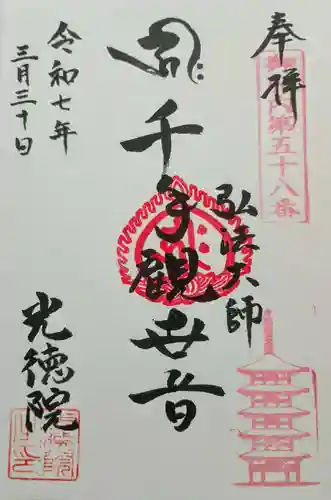 奉祥
第五十八番
弘法大師
千手觀世音
令和七年
三月三十日
光徳院